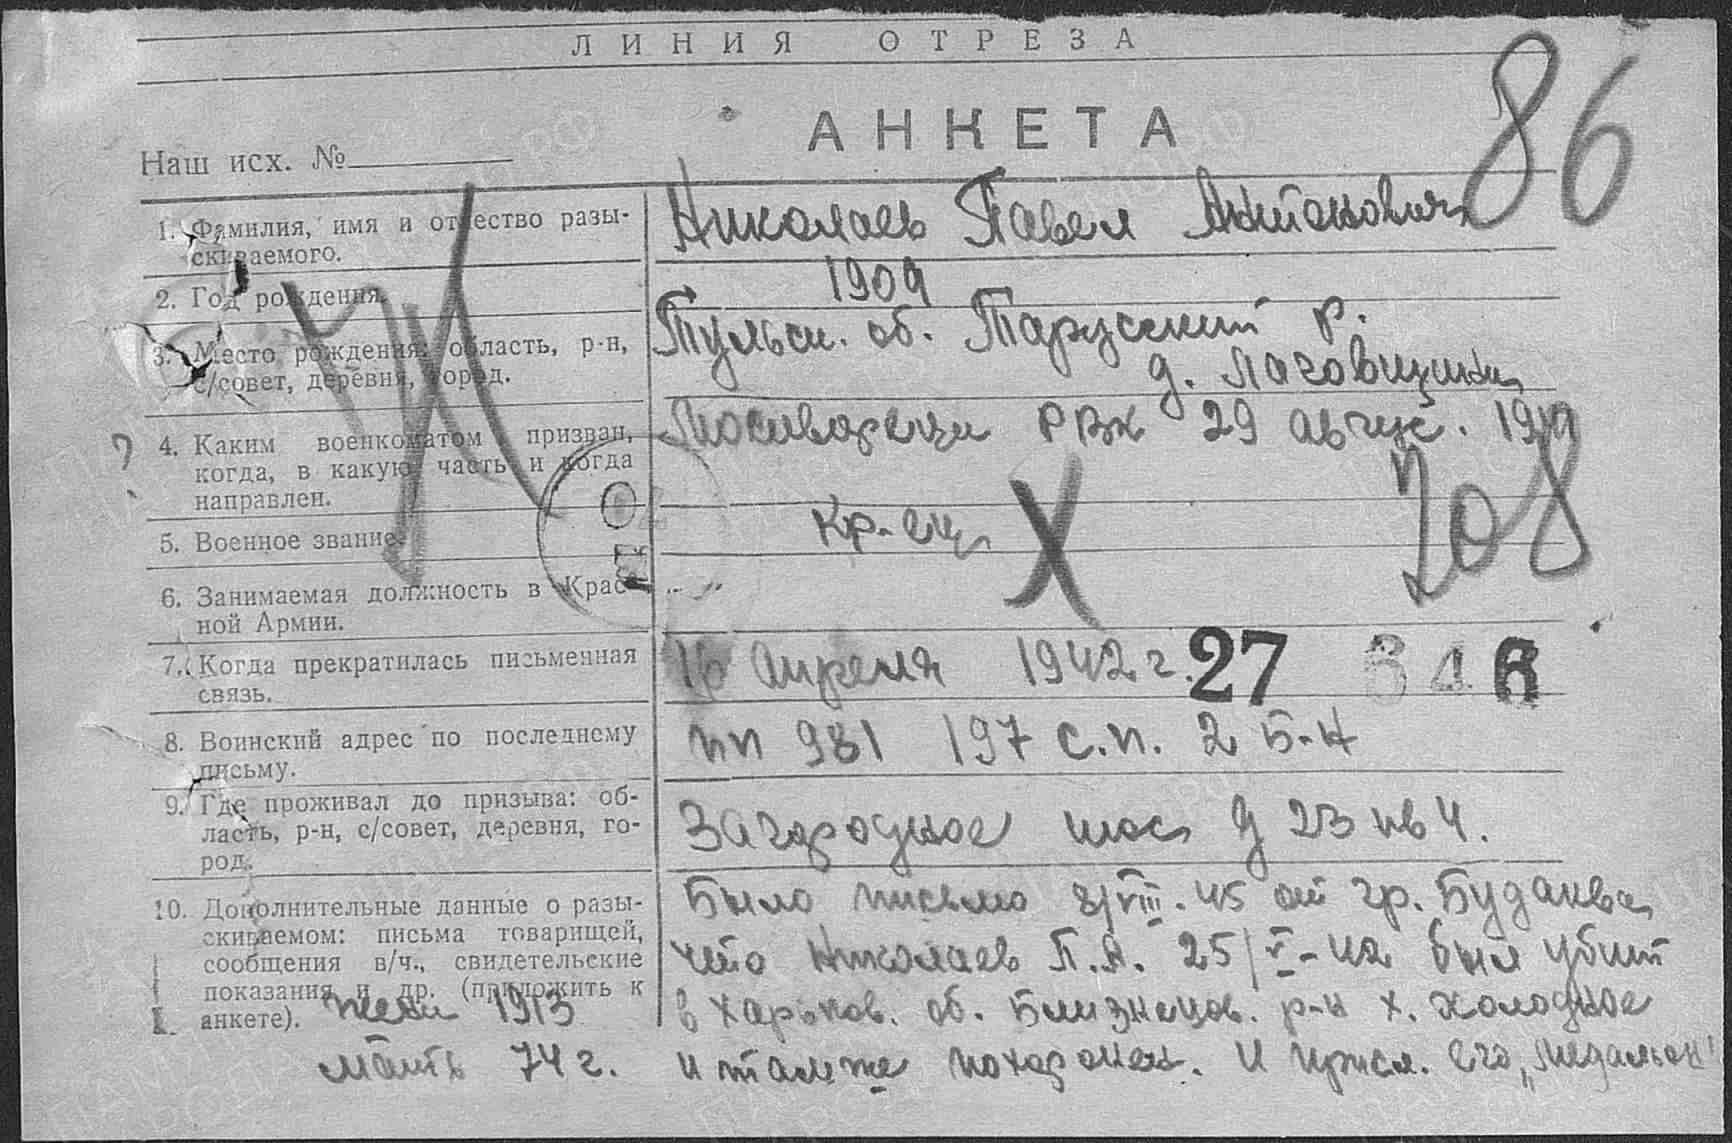 ЛИНИЯ ОТРЕЗА
86
АНКЕТА
Наш исх. №
1. Фамилия, имя и отчество разы-
скиваемого.
Николаев Павел Антонович
2. Год рождения.
1909
3. Место рождения: область, р-н,
с/совет, деревня, город.
Тульск. об. Тарусский р.
д.
4. Каким военкоматом призван,
когда, в какую часть и когда
направлен.
Москворецк РВК 29 авгус. 1941
208
5. Военное звание.
Кр-ец
6. Занимаемая должность в Крас-
ной Армии.
-„-
7. Когда прекратилась письменная
связь.
16 апреля 1942 г.
27 646
8. Воинский адрес по последнему
письму.
пп 981 197 с.п. 2 б-н
9. Где проживал до призыва: об-
ласть, р-н, с/совет, деревня, го-
род.
Загородное шос д 23 кв 4.
10. Дополнительные данные о разы-
скиваемом: письма товарищей,
сообщения в/ч., свидетельские
показания и др. (приложить к
анкете).
Было письмо 8/VIII.45 от гр.
что Николаев П.А. 25/V-42 был убит
в Харьков. об. Близнецов. р-н х. Холодное
и там же похоронен. И присл. его „медальон"
жена 1913
мать 74 г.